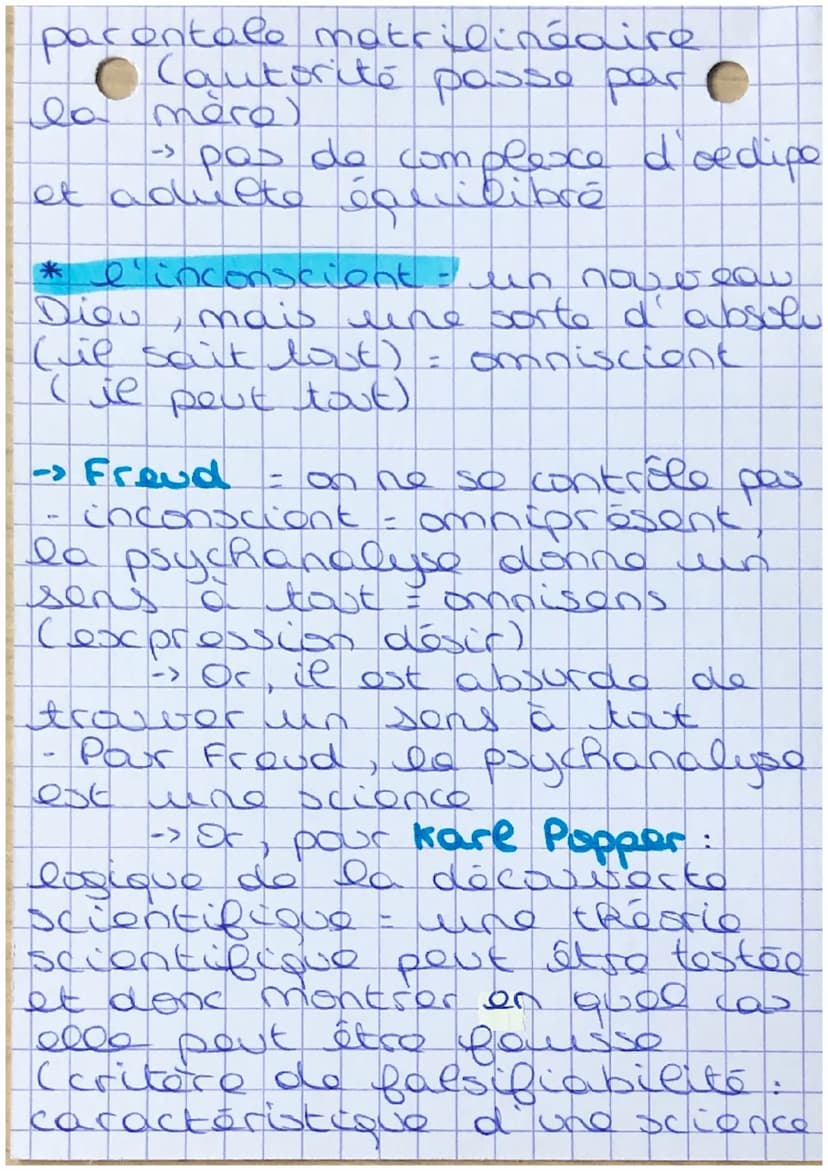 parentale matrilinéaire
(autorité passe par
la mère)
-> pas de complexe d'oedipe
et adulte équilibré
* l'inconscient = un nouveau
Dieu, mais une sorte d'absolu
(il sait tout) = omniscient
(il peut tout)
-> Freud = on ne se contrôle pas
- inconscient = omniprésent,
la psychanalyse donne un
sens à tout = omnisens
(expression désir)
-> Or, il est absurde de
trouver un sens à tout
- Pour Freud, la psychanalyse
est une science
-> Or, pour Karl Popper :
logique de la découverte
scientifique = une théorie
scientifique peut être testée
et donc montrer en quel cas
elle peut être fausse
(critère de falsifiabilité :
caractéristique d'une science